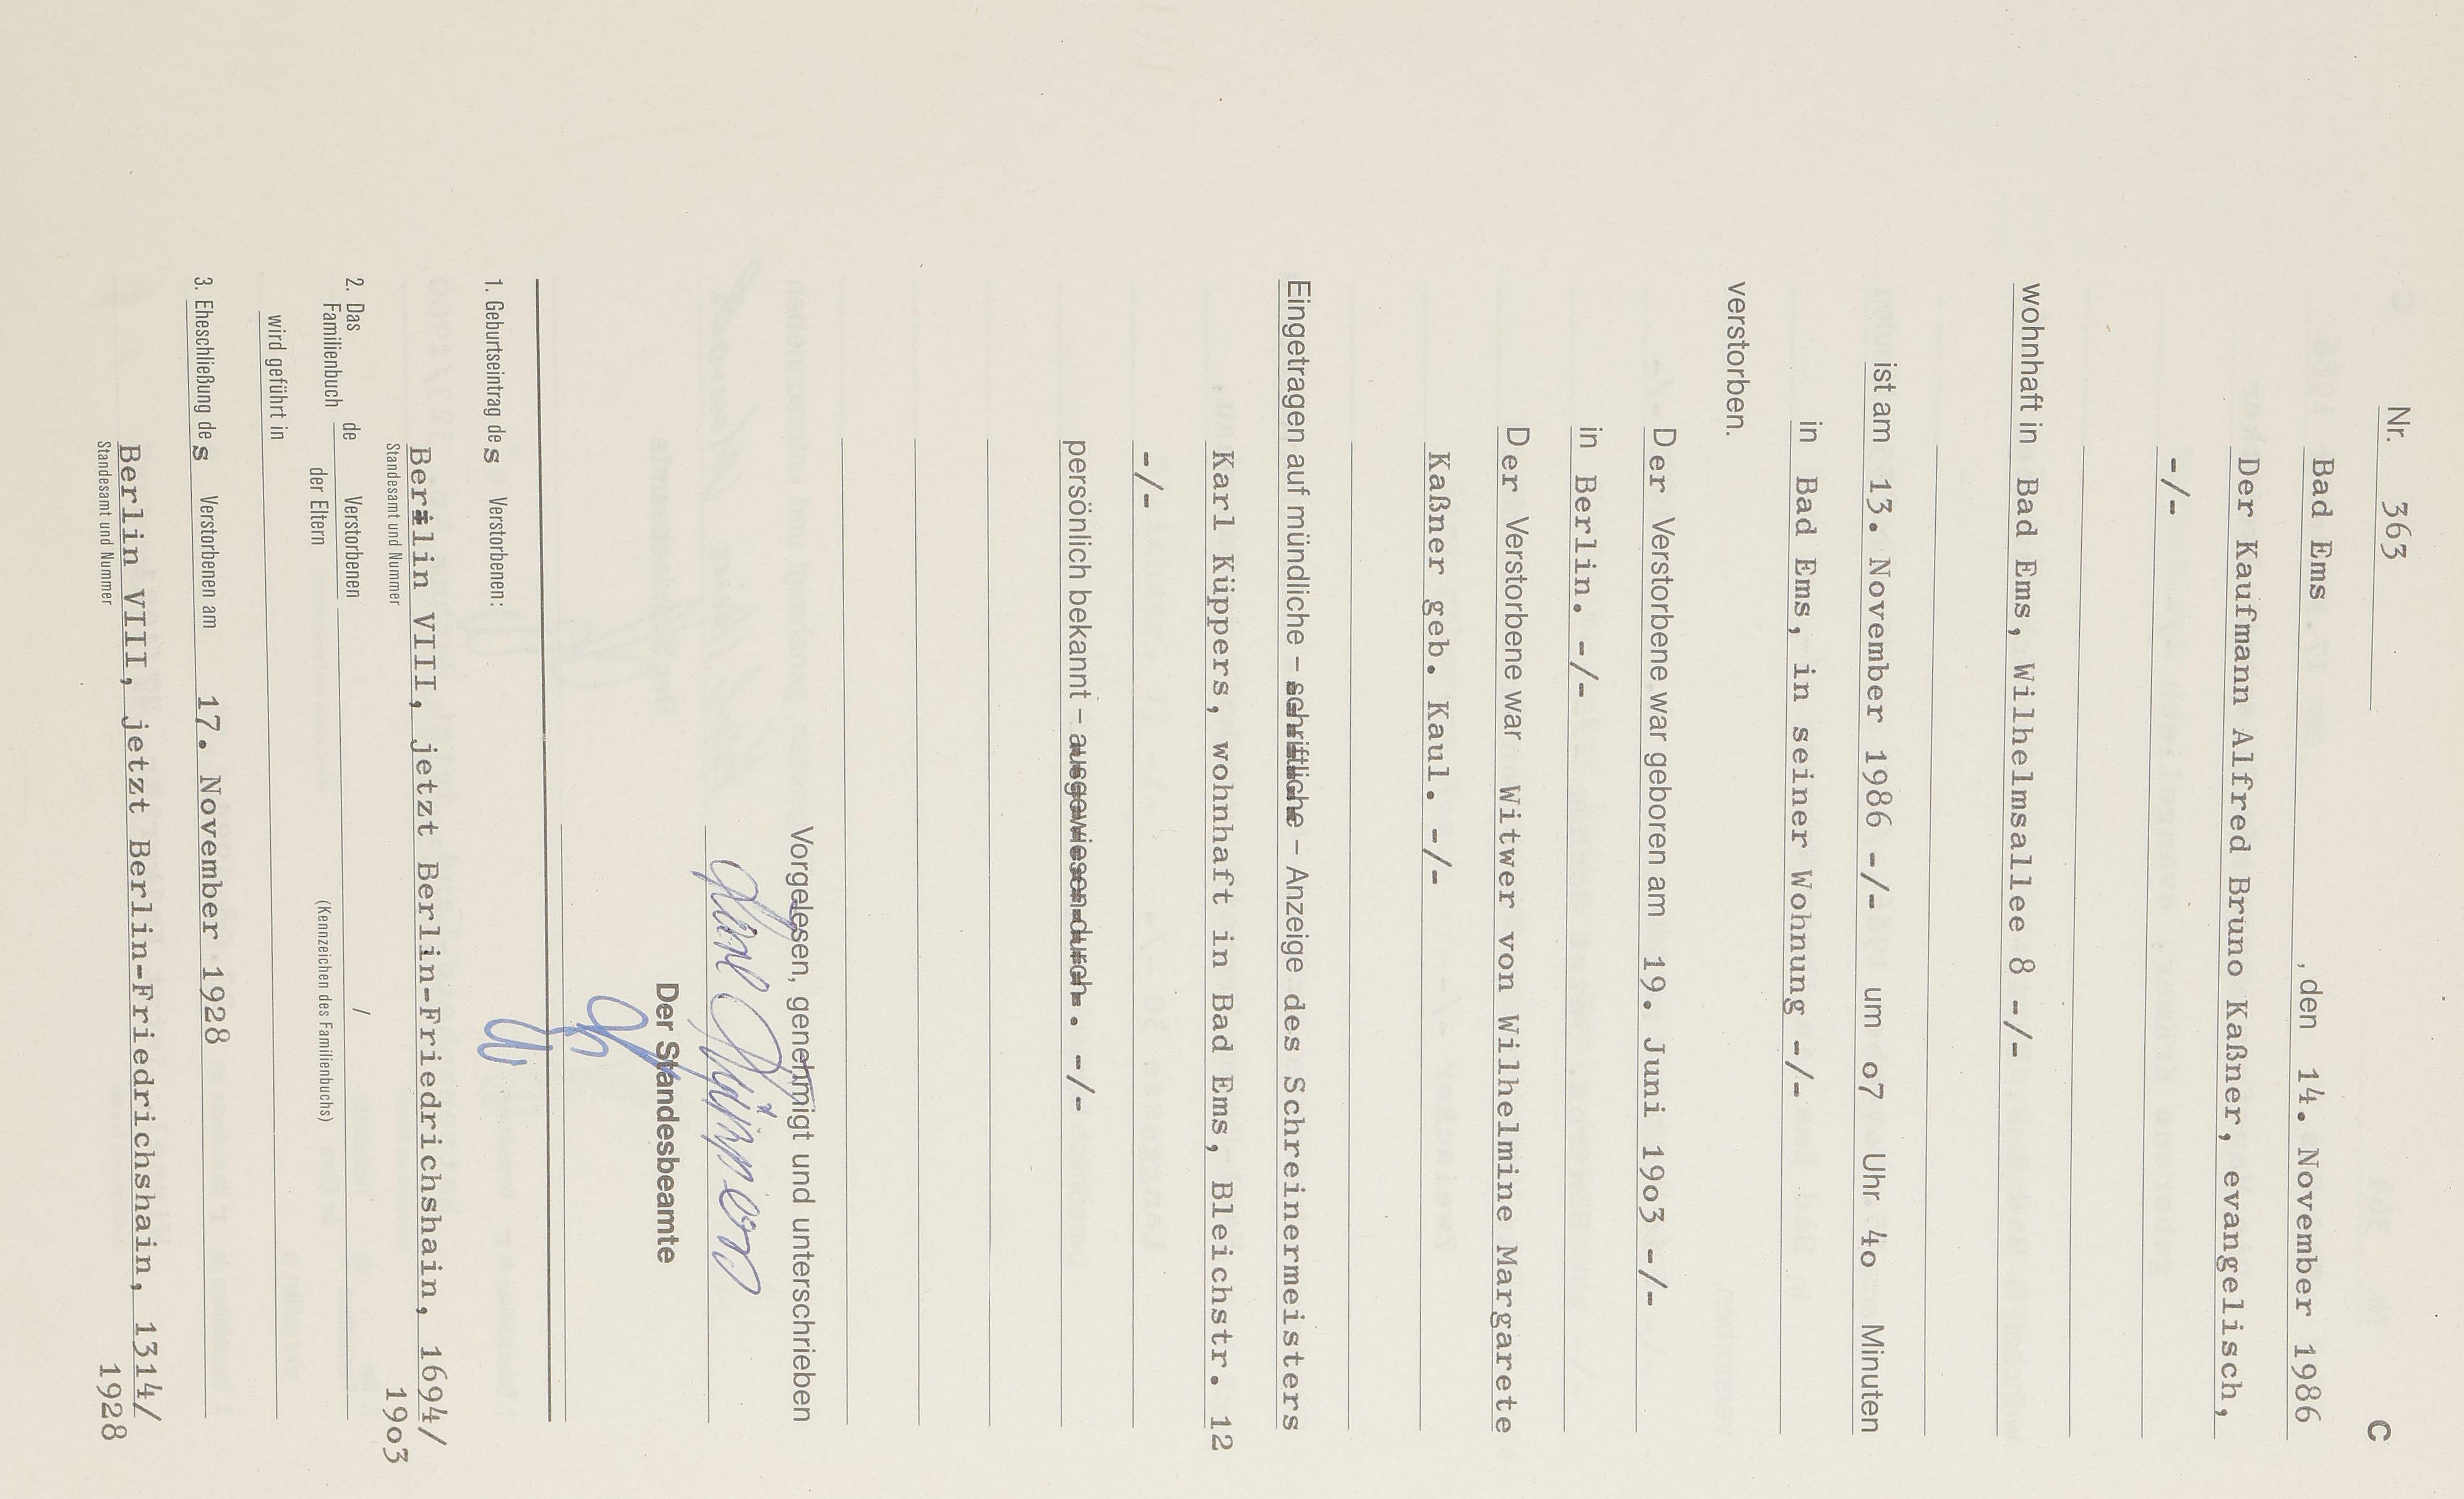 C
Nr. 363
Bad Ems , den 14. November 1986
Der Kaufmann Alfred Bruno Kaßner, evangelisch,
-/-
wohnhaft in Bad Ems, Wilhelmsallee 8 -/-
ist am 13. November 1986 -/- um o7 Uhr 4o Minuten
in Bad Ems, in seiner Wohnung -/-
verstorben.
Der Verstorbene war geboren am 19. Juni 19o3 -/-
in Berlin. -/-
Der Verstorbene war Witwer von Wilhelmine Margarete
Kaßner geb. Kaul. -/-
Eingetragen auf mündliche – schriftliche – Anzeige des Schreinermeisters
Karl Küppers, wohnhaft in Bad Ems, Bleichstr. 12
-/-
persönlich bekannt – ausgewiesen durch. -/-
Vorgelesen, genehmigt und unterschrieben
Karl Küppers
Der Standesbeamte
1. Geburtseintrag des Verstorbenen:
Berlin VIII, jetzt Berlin-Friedrichshain, 1694/
19o3
Standesamt und Nummer
2. Das Familienbuch de Verstorbenen /
der Eltern (Kennzeichen des Familienbuchs)
wird geführt in
3. Eheschließung des Verstorbenen am 17. November 1928
Berlin VIII, jetzt Berlin-Friedrichshain, 1314/
1928
Standesamt und Nummer